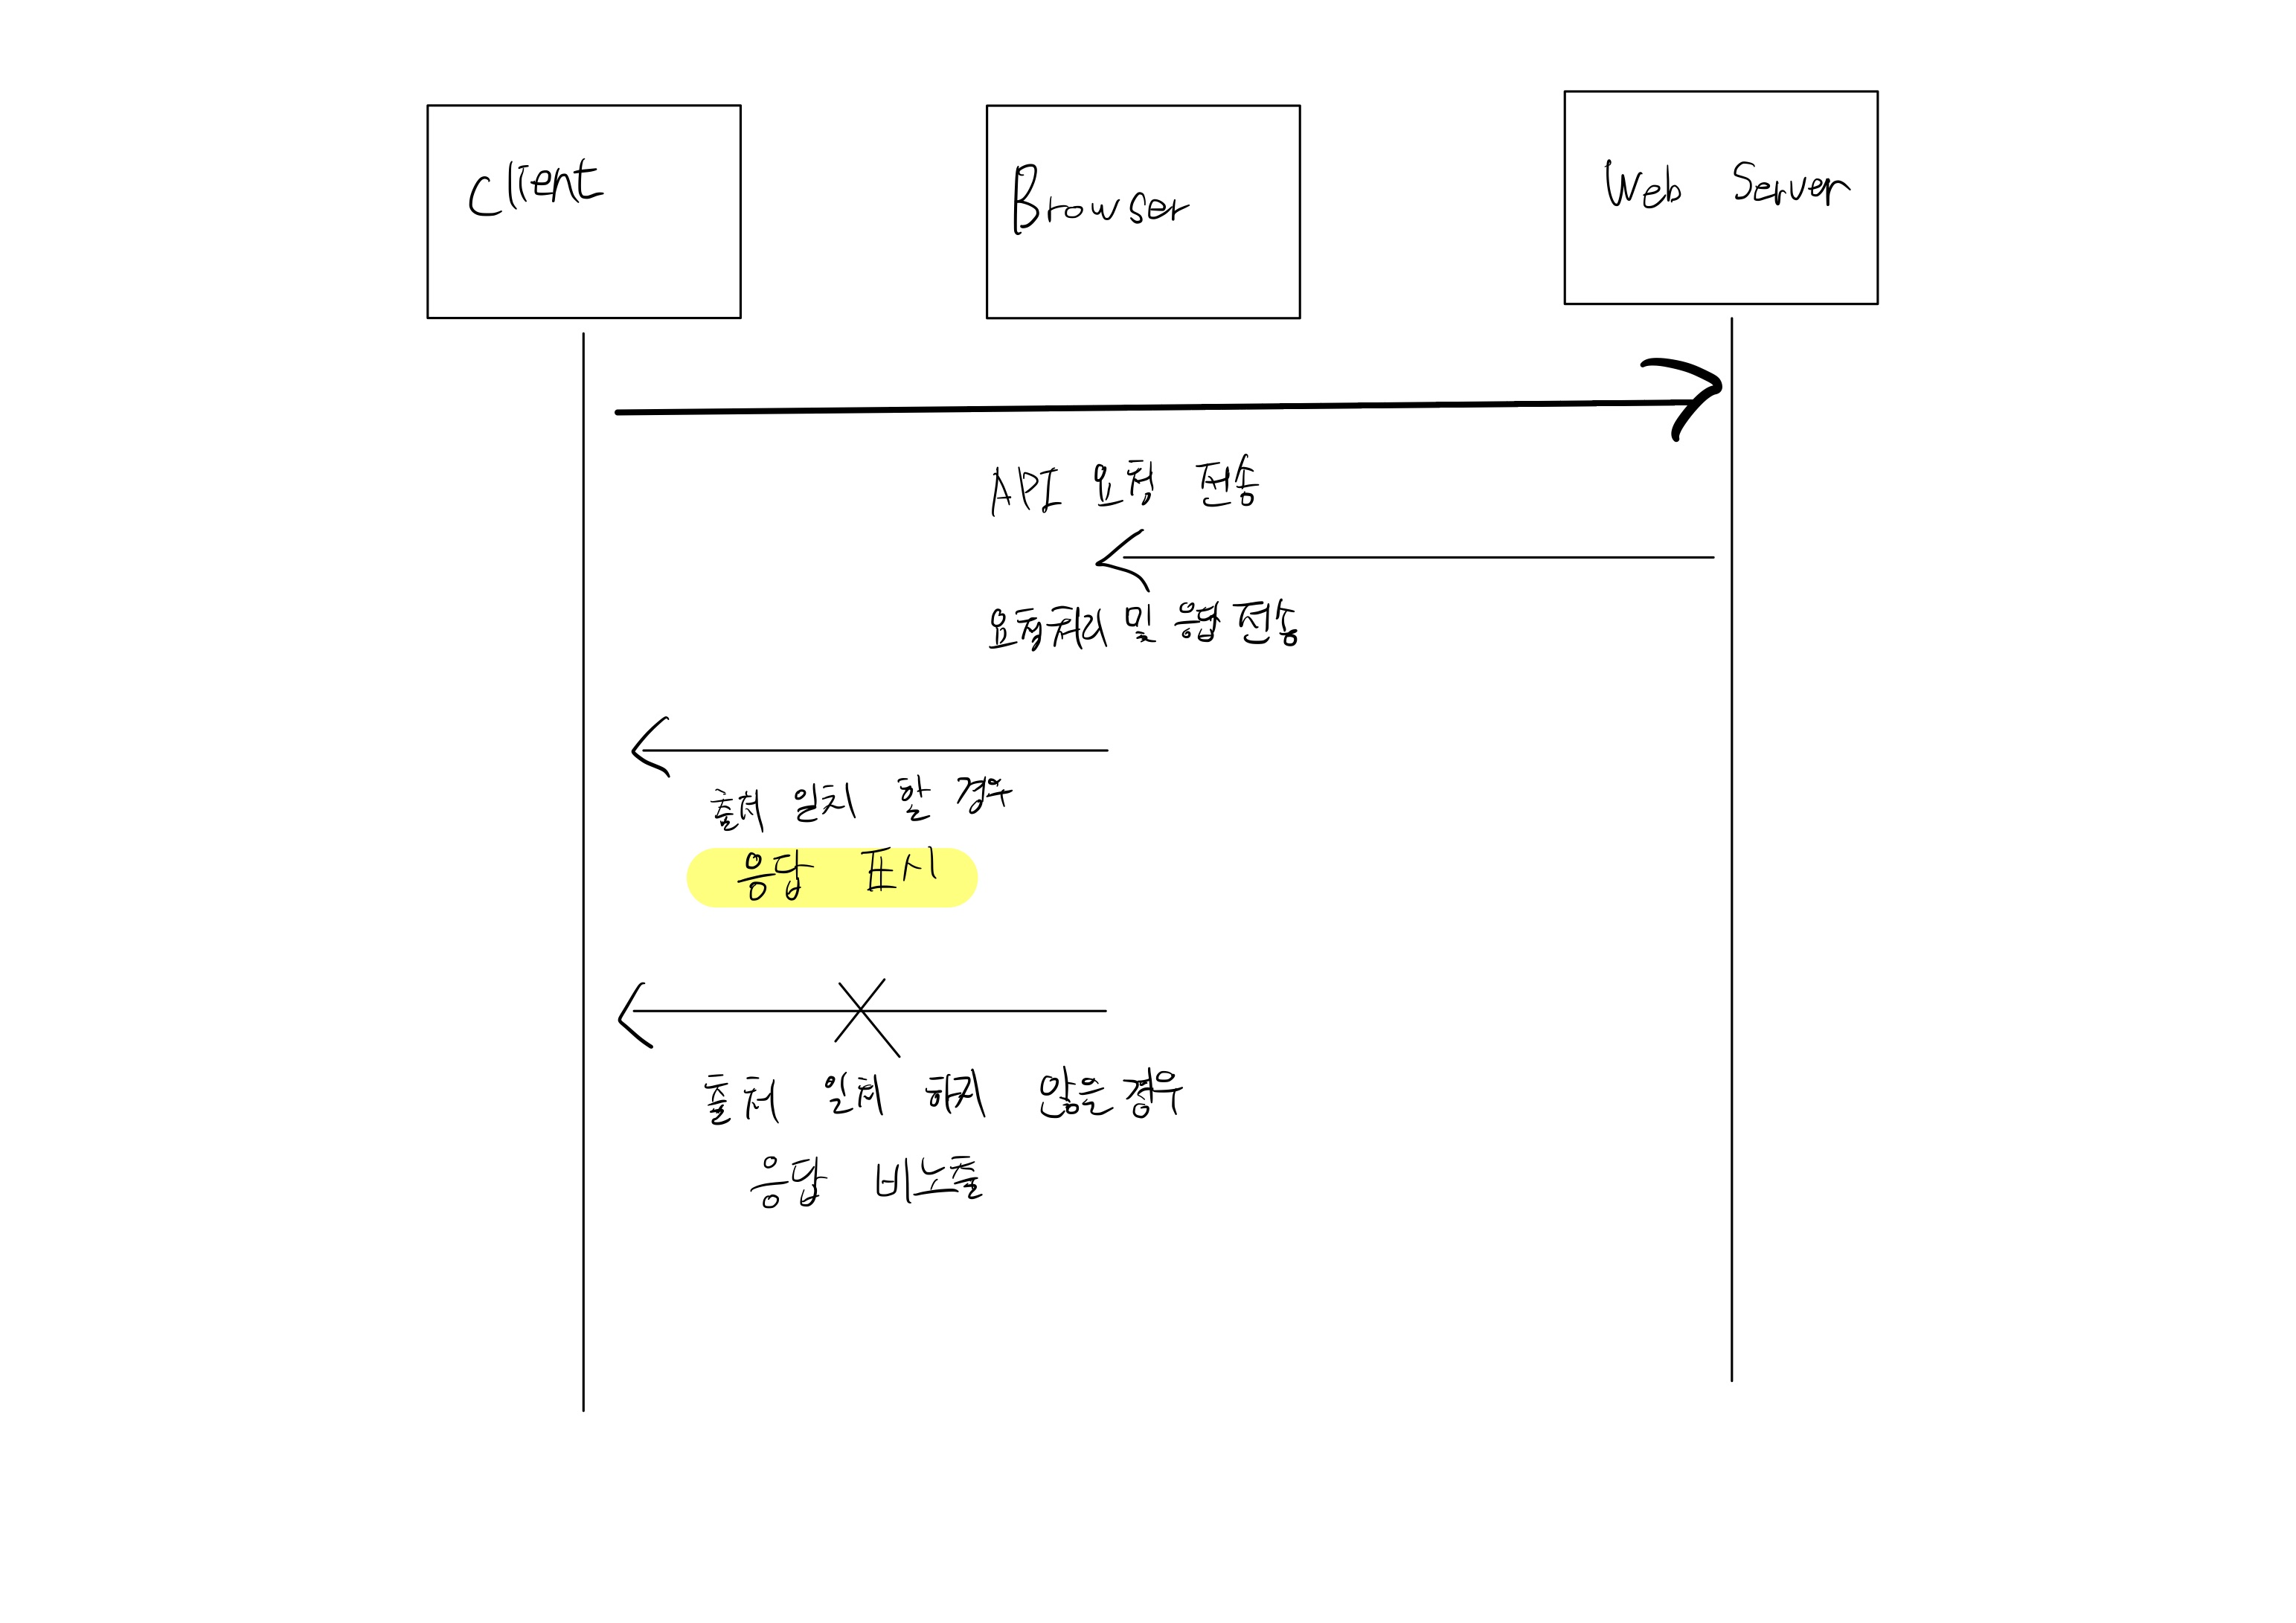 Client
Browser
Web Server
API 요청 전송
요청처리 및 응답 전송
출처 일치 할 경우
응답 표시
출처 일치 하지 않은 경우
응답 비노출